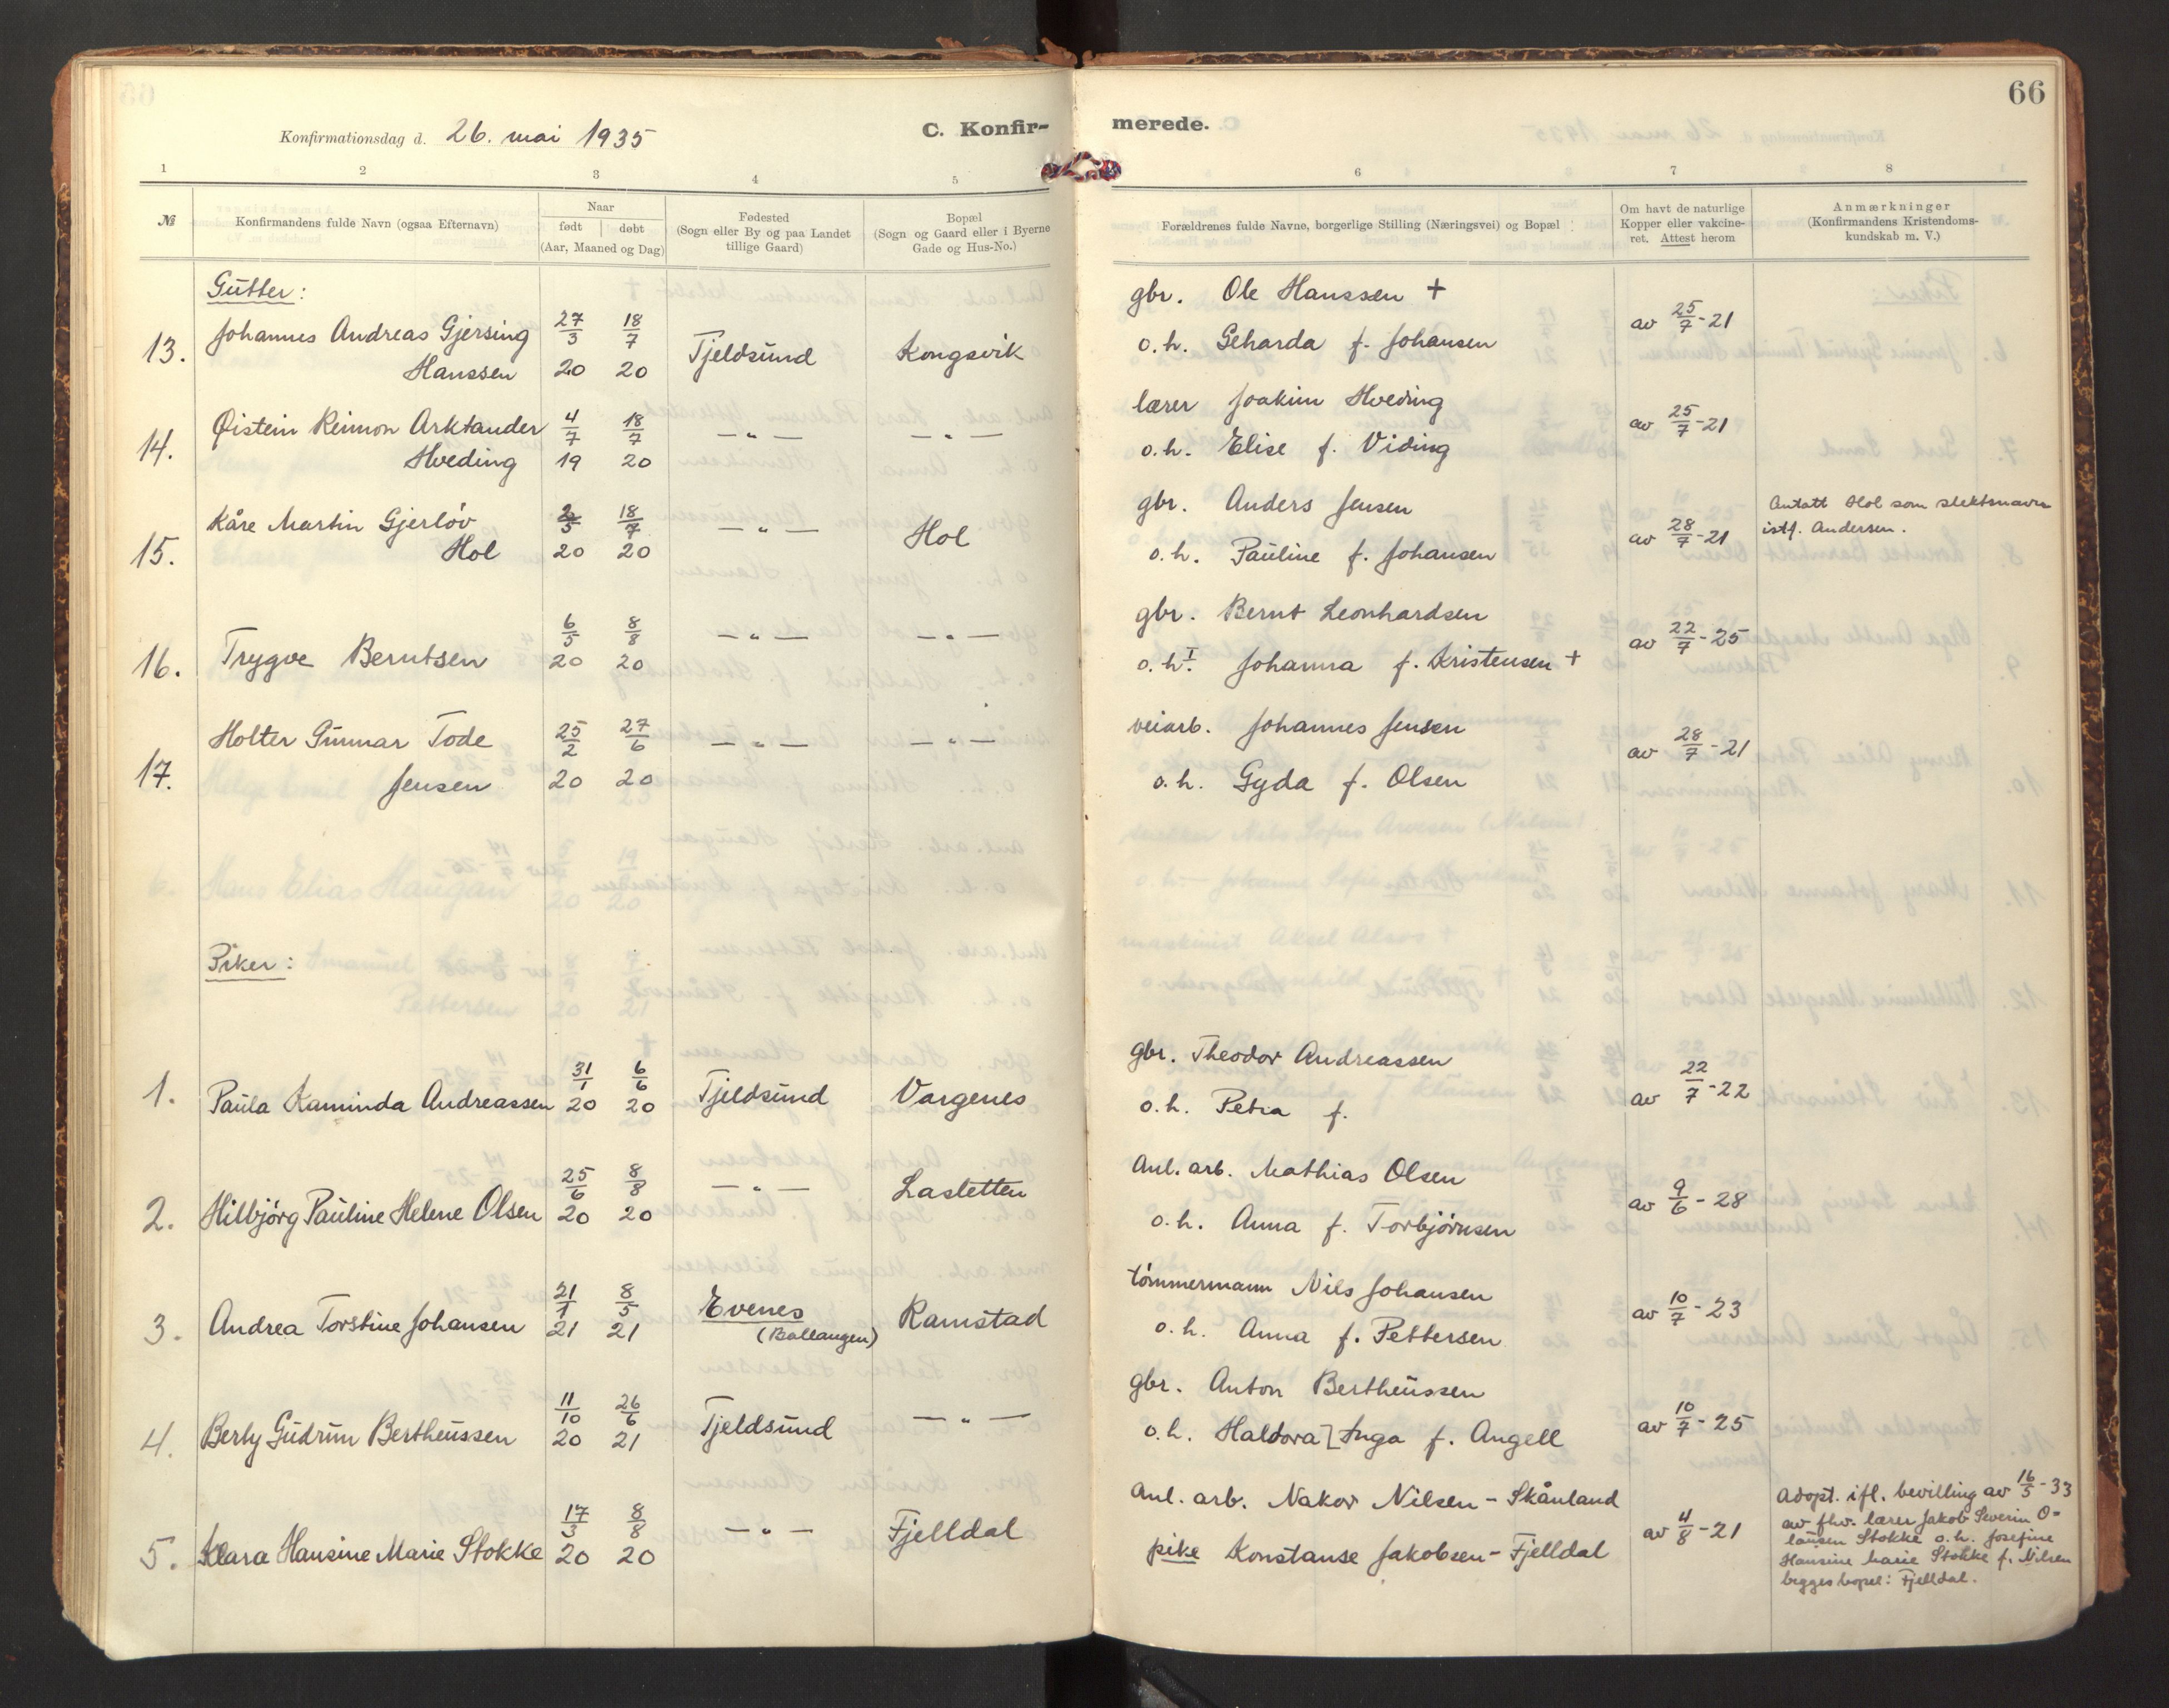 66
Konfirmationsdag d. 26. mai 1935
C. Konfir-
merede.
1 2 3 4 5 6 7 8
№
Konfirmandens fulde Navn (ogsaa Efternavn)
Naar
født døbt
(Aar, Maaned og Dag)
Fødested
(Sogn eller By og paa Landet
tillige Gaard)
Bopæl
(Sogn og Gaard eller i Byerne
Gade og Hus-No.)
Forældrenes fulde Navne, borgerlige Stilling (Næringsvei) og Bopæl
Om havt de naturlige
Kopper eller vakcine-
ret. Attest herom
Anmærkninger
(Konfirmandens Kristendoms-
kundskab m. V.)
Gutter:
gbr. Ole Hanssen +
13. Johannes Andreas Gjersing 27/3 18/7 Tjeldsund Kongsvik av 25/7-21
Hanssen 20 20 o. h. Geharda f. Johansen
lærer Joakim Hveding
14. Øistein Reimon Arktander 4/7 18/7 —„— —„— av 25/7-21
Hveding 19 20 o. h. Elise f. Viding
gbr. Anders Jensen Antatt Hol som slektsnavn
15. Kåre Martin Gjerløv 2/5 18/7 —„— Hol av 28/7-21 istf. Andersen.
Hol 20 20 o. h. Pauline f. Johansen
gbr. Bernt Leonhardsen
16. Trygve Berntsen 6/5 8/8 —„— —„— av 22/7-25
20 20 o. h. I Johanna f. Kristensen +
veiarb. Johannes Jensen
17. Holter Gunnar Tode 25/2 27/6 —„— —„— av 28/7-21
Jensen 20 20 o. h. Gyda f. Olsen
Piker:
gbr. Theodor Andreassen
1. Paula Kaminda Andreassen 31/1 20 6/6 20 Tjeldsund Vargenes av 22/7-22
o. h. Petra f.
Anl. arb. Mathias Olsen
2. Hilbjørg Pauline Helene Olsen 25/6 20 8/8 20 —„— Lastetten av 9/6-28
o. h. Anna f. Torbjørnsen
tømmermann Nils Johansen
3. Andrea Torstine Johansen 21/1 21 8/5 21 Evenes Ramstad av 10/7-23
(Ballangen)
o. h. Anna f. Pettersen
gbr. Anton Bertheussen
4. Berly Gudrun Bertheussen 11/10 20 26/6 21 Tjeldsund —„— av 10/7-25
o. h. Haldora] Inga f. Angell
Anl. arb. Nakor Nilsen - Skånland
5. Klara Hansine Marie Stokke 17/3 20 8/8 20 —„— Fjelldal av 4/8-21
pike Konstanse Jakobsen - Fjelldal
Adopt. ifl. bevilling av 16/5-33
av fhv. lærer Jakob Severin O-
lausen Stokke o. h. Josefine
Hansine Marie Stokke f. Nilsen
begges bopel: Fjelldal.